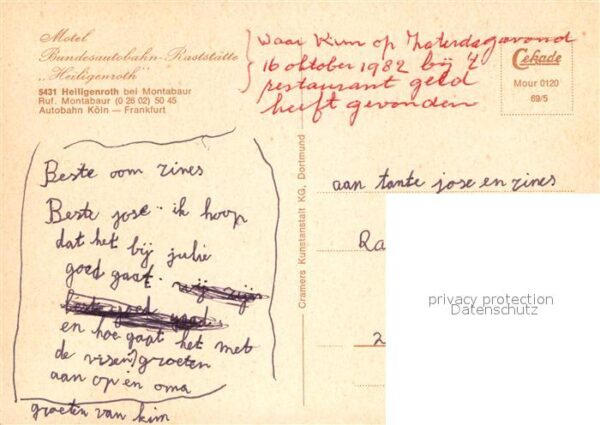 Motel
Bundesautobahn-Raststätte
„Heiligenroth"
5431 Heiligenroth bei Montabaur
Ruf. Montabaur (0 26 02) 50 45
Autobahn Köln — Frankfurt
waar Kim op Zaterdagavond
16 oktober 1982 bij 't
restaurant geld
heeft gevonden
Cekade
Mour 0120
69/5
Cramers Kunstanstalt KG, Dortmund
Beste oom rines
Beste jose. ik hoop
dat het bij julie
goed gaat. wij zijn
goed
en hoe gaat het met
de vissen? groeten
aan op en oma
groeten van kim
aan tante jose en rines
Ra
2
privacy protection
Datenschutz